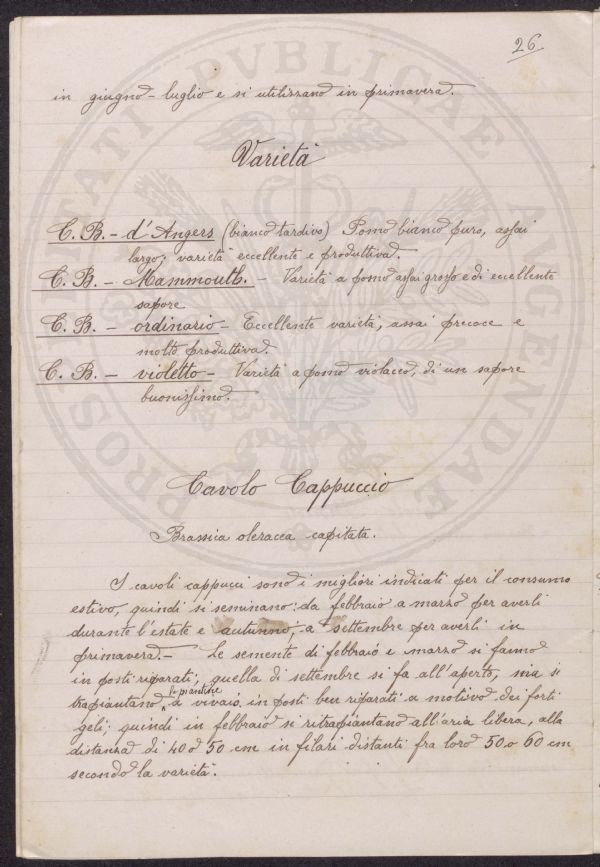 26
in giugno - luglio e si utilizzano in primavera.
Varietà
C. B. - d'Angers (bianco tardivo) Pomo bianco puro, assai
largo; varietà eccellente e produttiva.
C. B. - Mammouth. - Varietà a pomo assai grosso e di eccellente
sapore
C. B. - ordinario - Eccellente varietà, assai precoce e
molto produttiva.
C. B. - violetto - Varietà a pomo violaceo, di un sapore
buonissimo.
Cavolo Cappuccio
Brassica oleracea capitata.
I cavoli cappucci sono i migliori indicati per il consumo
estivo, quindi si seminano: da febbraio a marzo per averli
durante l'estate e autunno, a settembre per averli in
primavera. - Le semente di febbraio e marzo si fanno
in posti riparati; quella di settembre si fa all'aperto, ma si
trapiantano le piantine a vivaio in posti ben riparati a motivo dei forti
geli; quindi in febbraio si ritrapiantano all'aria libera, alla
distanza di 40 o 50 cm in filari distanti fra loro 50 o 60 cm
secondo la varietà.
PROSPERITATI PVBLICAE AVGENDAE